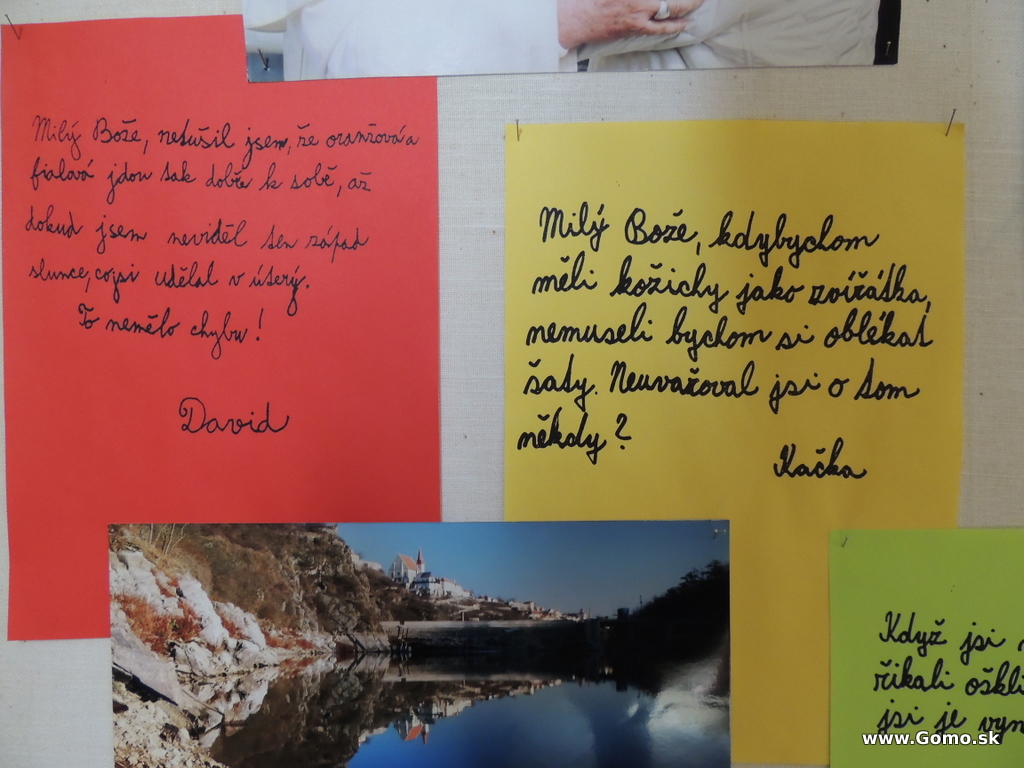 Milý Bože, netušil jsem, že oranžová a
fialová jdou tak dobře k sobě, až
dokud jsem neviděl ten západ
slunce, cojsi udělal v úterý.
To nemělo chybu!
David
Milý Bože, kdybychom
měli kožichy jako zvířátka,
nemuseli bychom si oblékat
šaty. Neuvažoval jsi o tom
někdy?
Kačka
Když jsi
řikali
jsi je
www.Gomo.sk